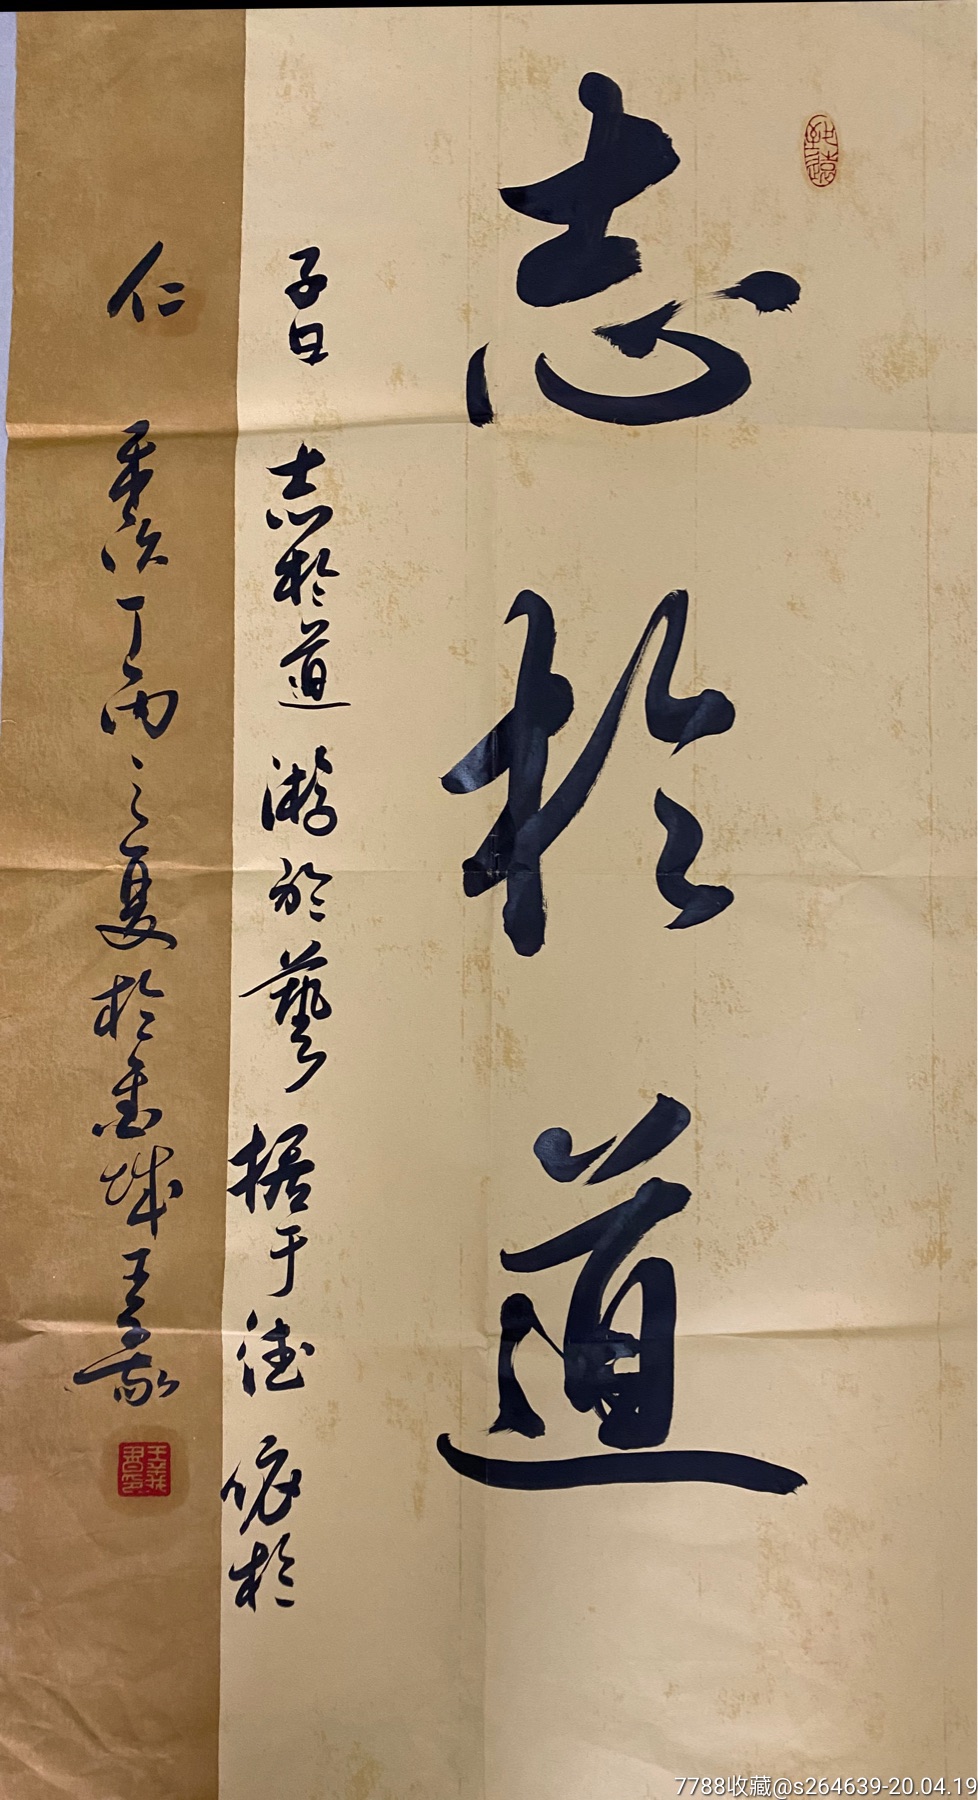 志於道
子曰 志於道 游於藝 据于德 依於
仁 歲次丁 之夏於 城王
7788收藏@s264639-20.04.19